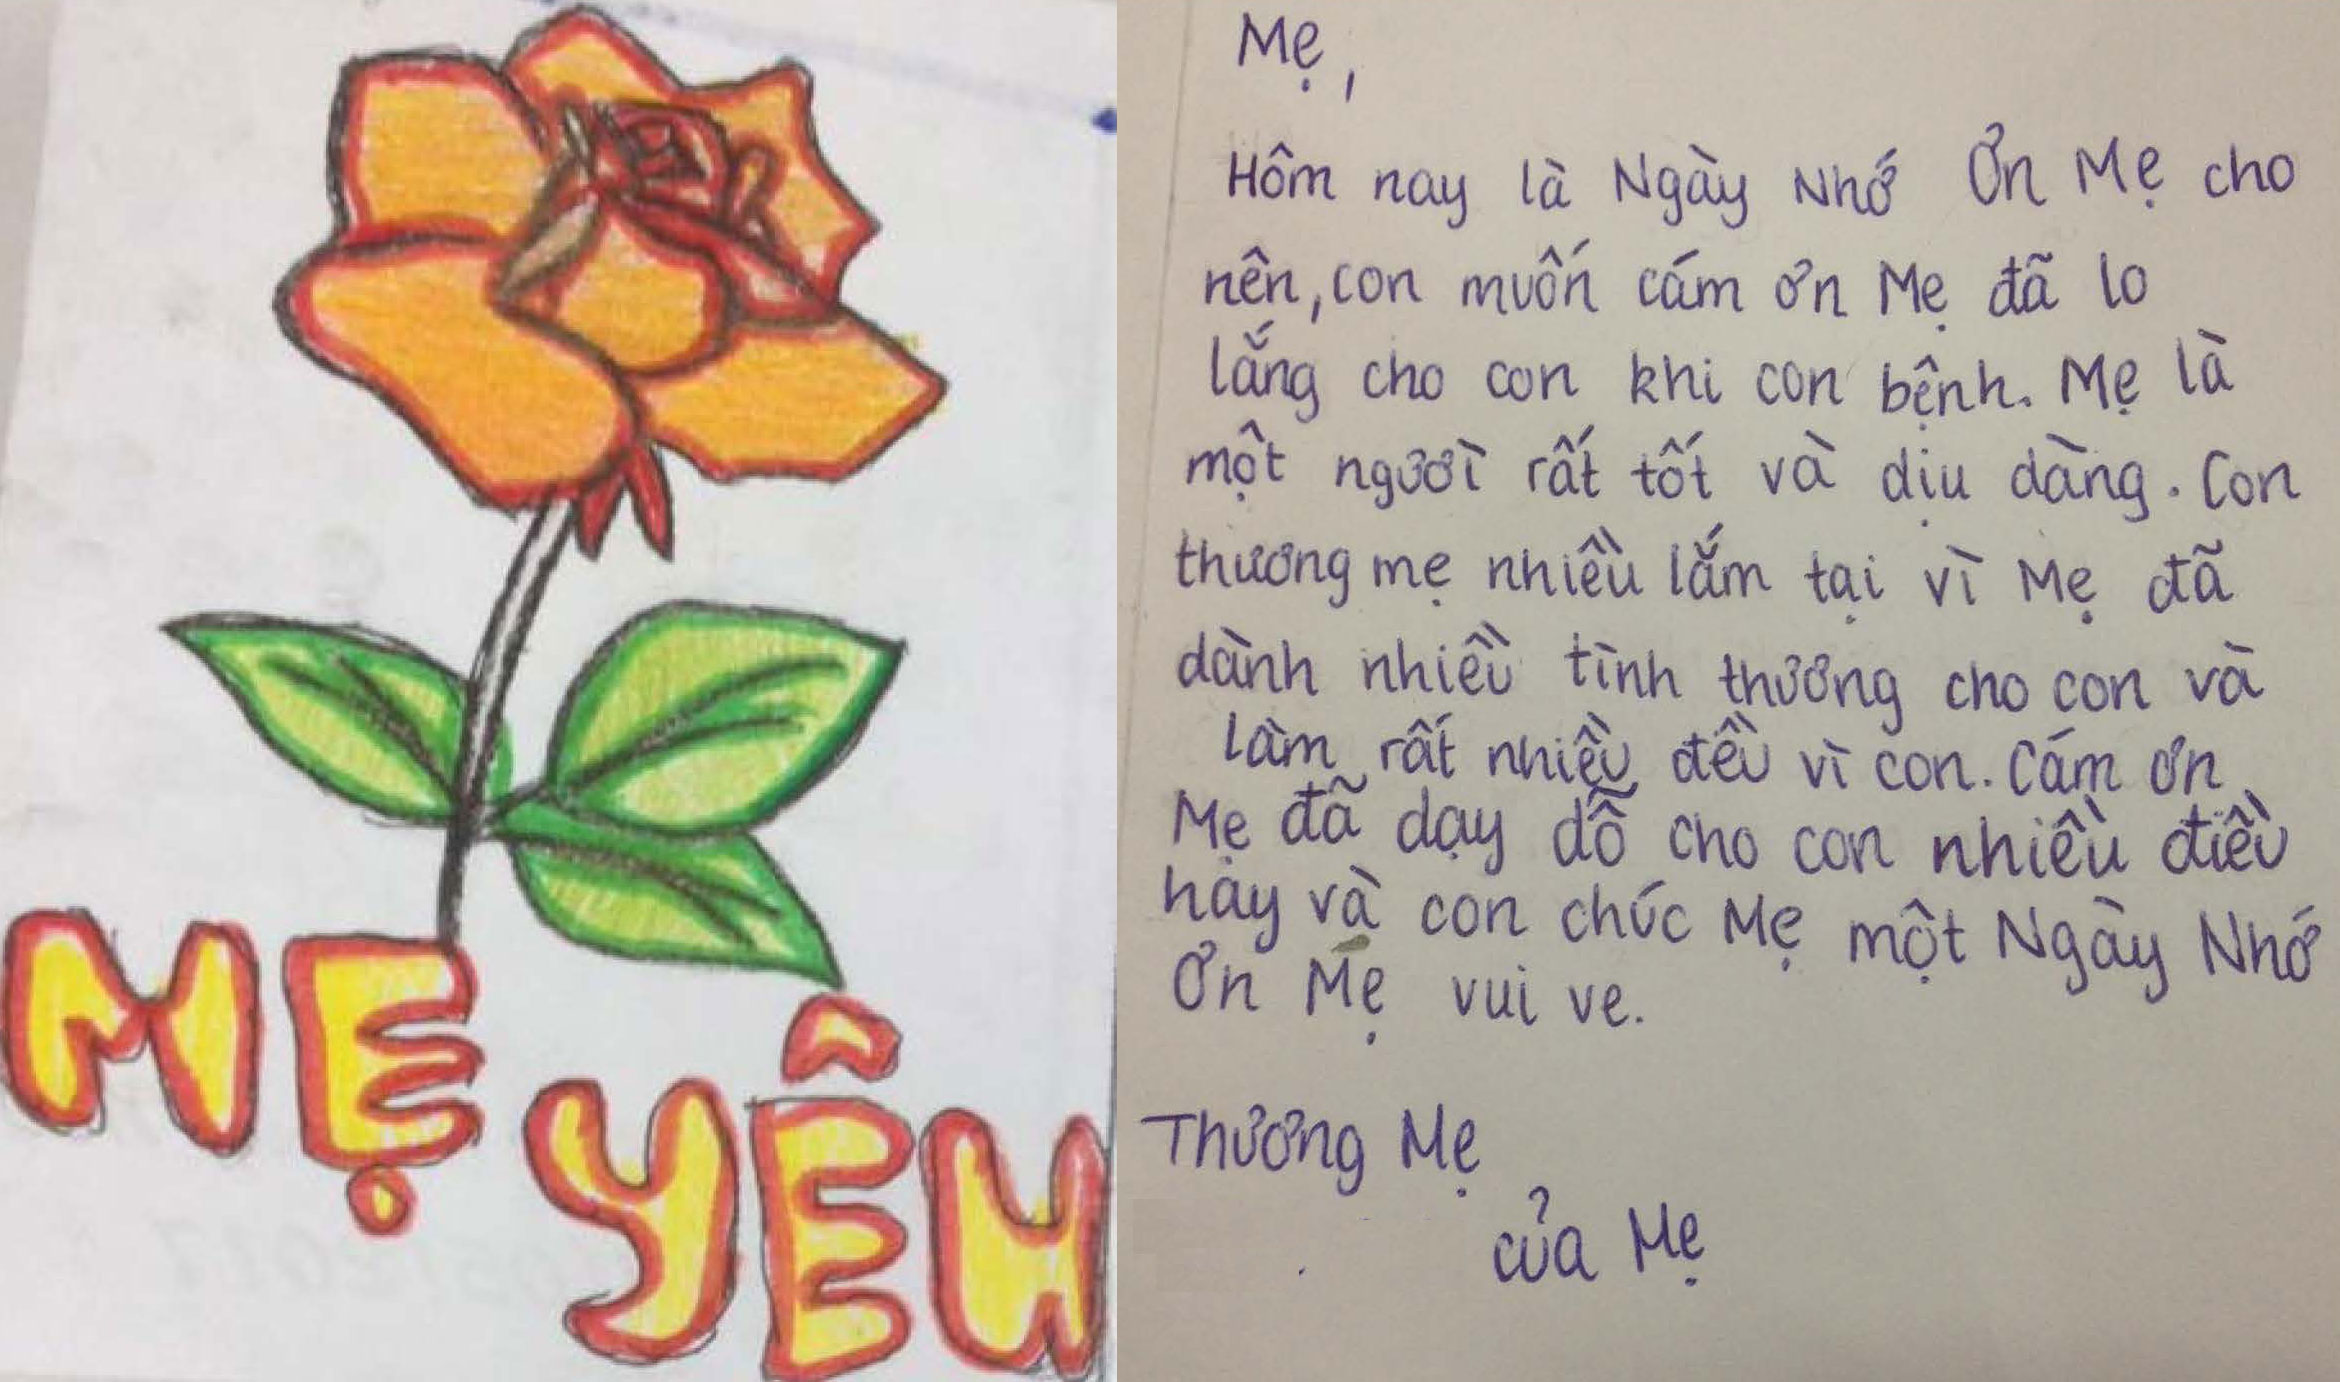 MẸ
YÊU
Mẹ,
Hôm nay là Ngày Nhớ Ơn Mẹ cho
nên, con muốn cám ơn Mẹ đã lo
lắng cho con khi con bệnh. Mẹ là
một người rất tốt và dịu dàng. Con
thương mẹ nhiều lắm tại vì Mẹ đã
dành nhiều tình thương cho con và
làm rất nhiều đều vì con. Cám ơn
Mẹ đã dạy dỗ cho con nhiều điều
hay và con chúc Mẹ một Ngày Nhớ
Ơn Mẹ vui ve.
Thương Mẹ
của Mẹ